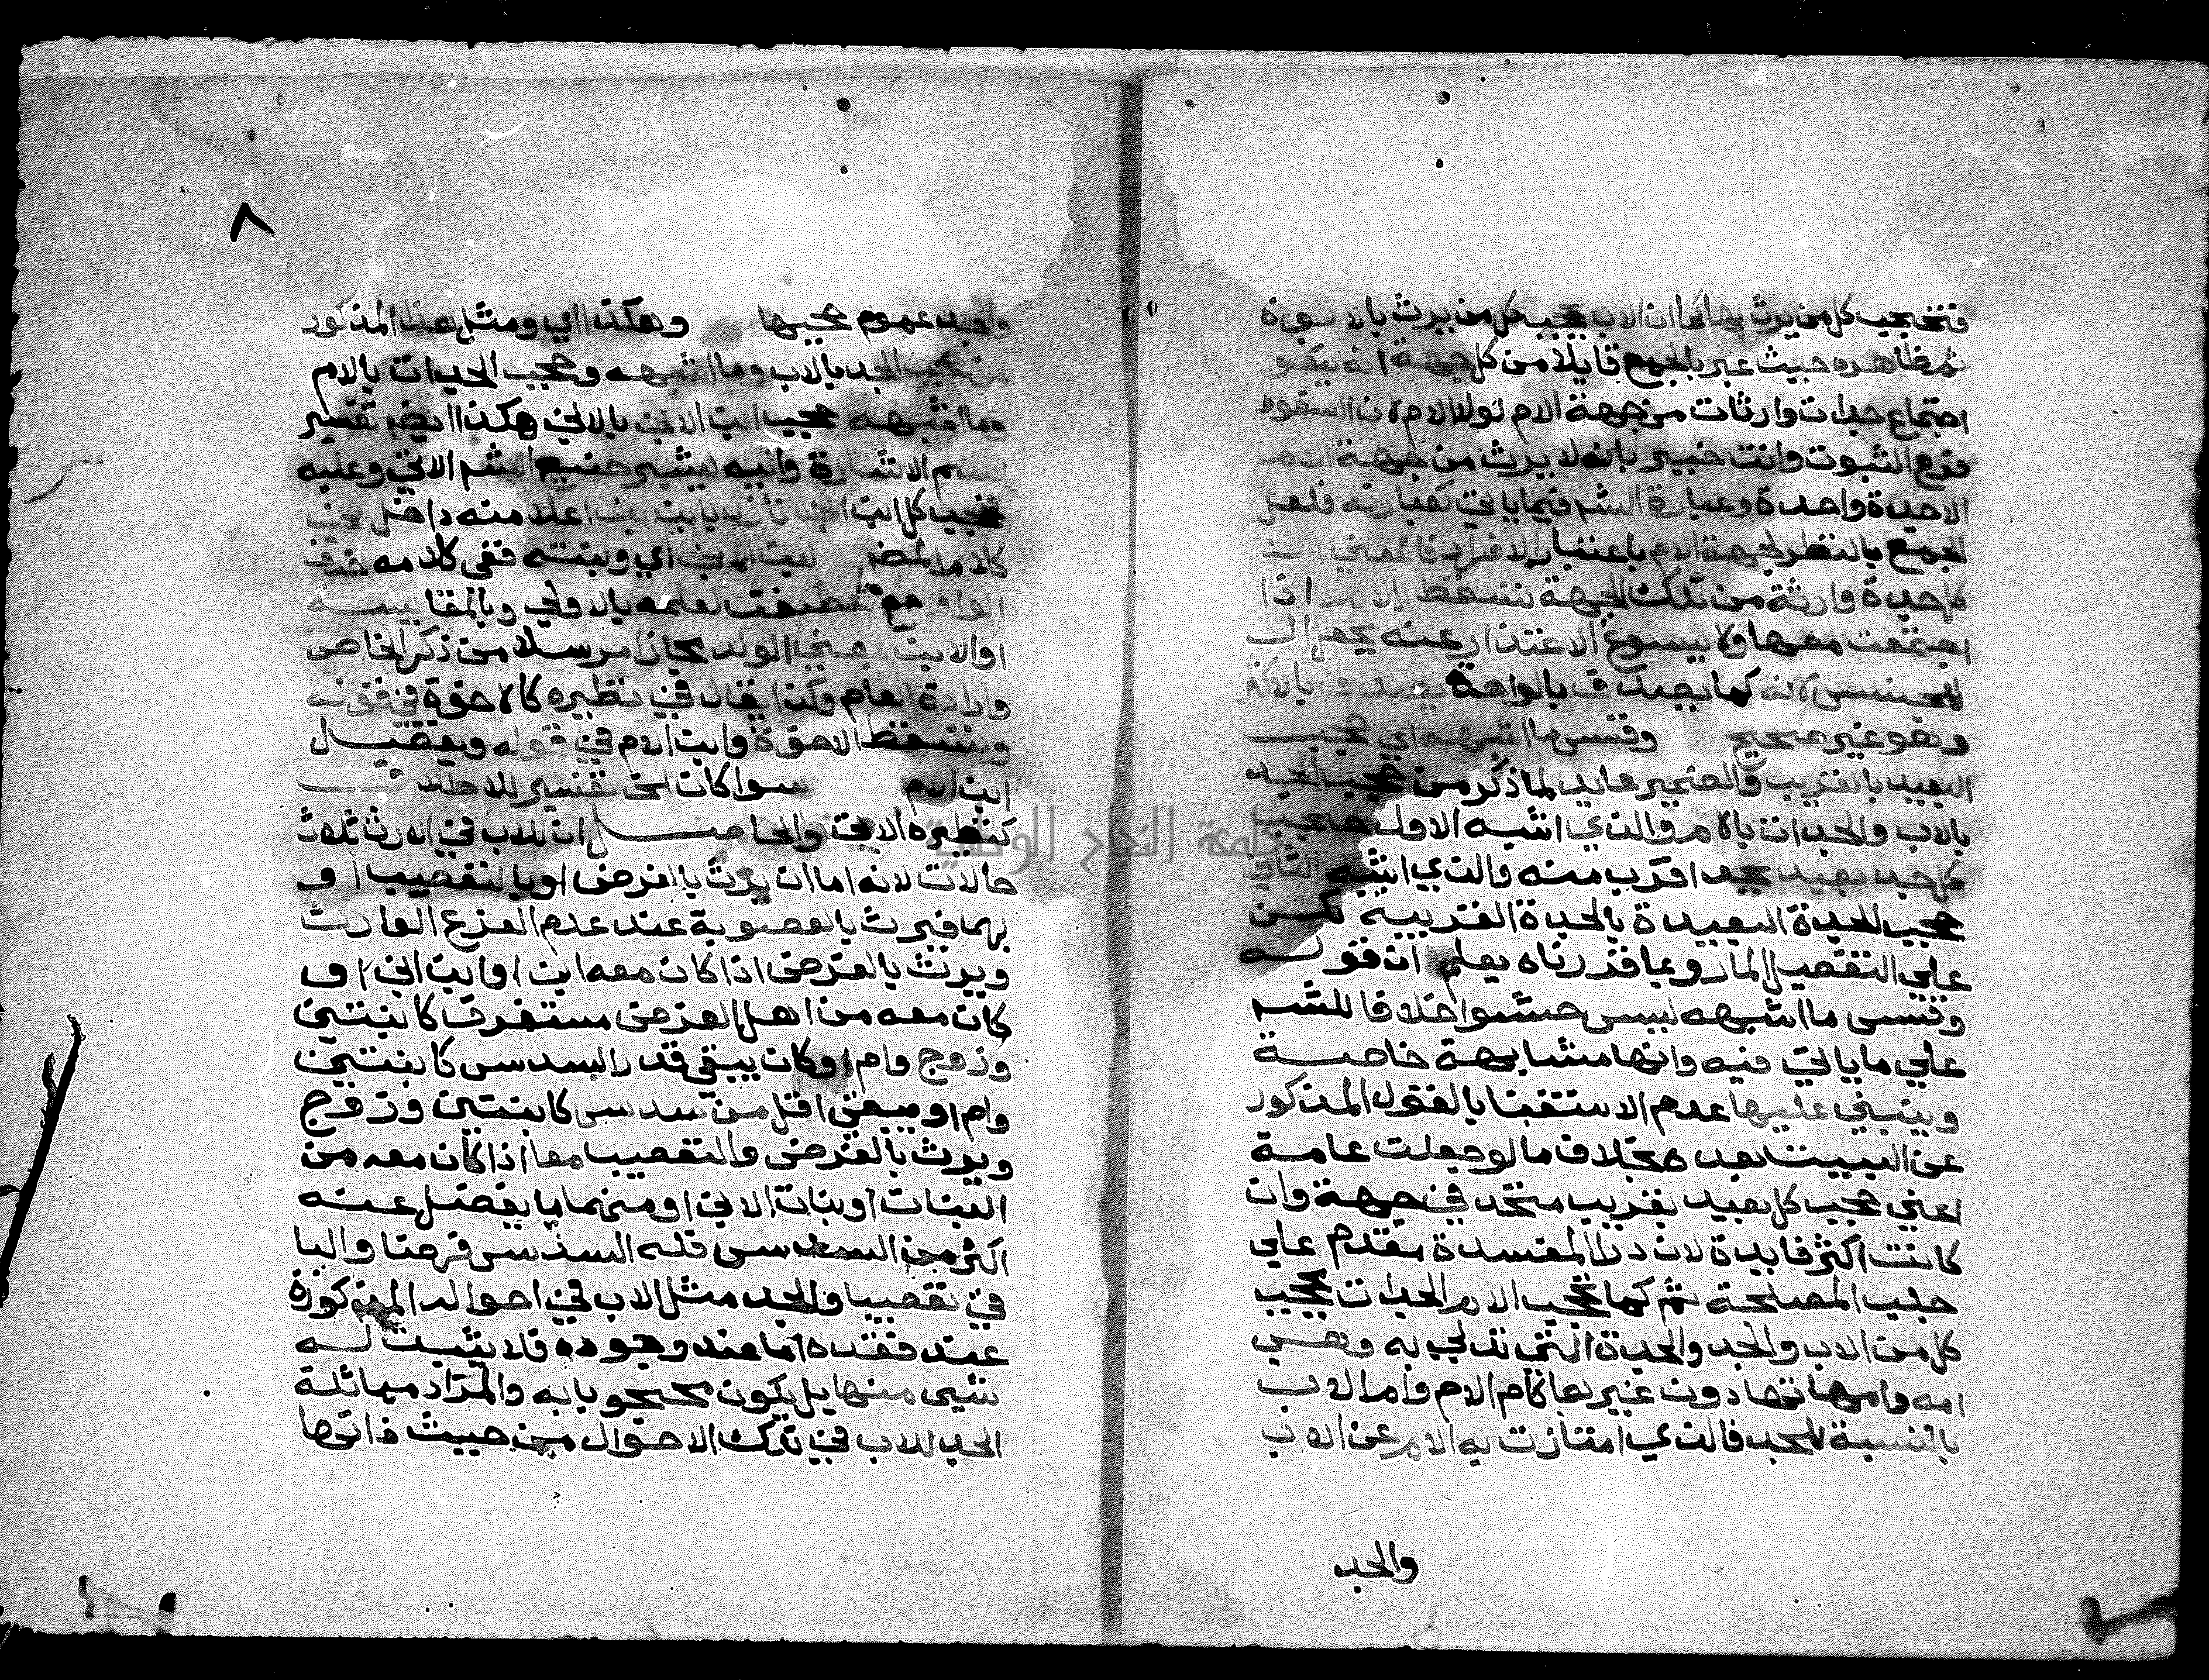 فتحجب كل من يرث بها كما ان الاب يحجب كل من يرث بالابوة
ثم ظاهره حيث عبر بالجمع قايلا من كل جهة انه يتصو
اجتماع جدات وارثات من جهة الام لولا الام لان السقوط
فرع الثبوت وانت خبير بانه لا يرث من جهة الام
الا جدة واحدة وعبارة الشم فيما ياتي كعبارته فلعل
الجمع بالنظر لجهة الام باعتبار الافراد فالمعني ان
كل جدة وارثة من تلك الجهة تسقط بالام اذا
اجتمعت معها ولا يسوغ الاعتذار عنه بجعل ال
للجنس لانه كما يصدق بالواحد يصدق بالاكثر
وهو غير صحيح وقس ما اشبهه اي حجب
البعيد بالقريب والضمير عايد لما ذكر من حجب الجد
بالاب والجدات بالام والذي اشبه الاول حجب
كل جد بعيد بجد اقرب منه والذي اشبه الثاني
حجب الجدة البعيدة بالجدة القريبة لكن
علي التفصيل المار وبما قررناه يعلم ان قوله
وقس ما اشبهه ليس حشوا خلافا للشم
علي ما ياتي فيه وانها مشابهة خاصة
وينبني عليها عدم الاستغنا بالقول المذكور
عن البيت بعده بخلاف ما لو جعلت عامة
اعني حجب كل بعيد بقريب متحد في جهة وان
كانت اكثر فايدة لان درا المفسدة مقدم علي
جلب المصلحة ثم كما تحجب الام الجدات يحجب
كل من الاب والجد والجدة التي تدلي به وهي
امه وامهاتها دون غيرها كام الام وام الاب
بالنسبة للجد فالذي امتازت به الام عن الاب
والجد
٨
والجد عموم حجبها وهكذا اي ومثل هذا المذكور
من حجب الجد بالاب وما اشبهه وحجب الجدات بالام
وما اشبهه حجب ابن الابن بالابن هكذا ايضم تفسير
اسم الاشارة واليه يشير صنيع الشم الاتي وعليه
فحجب كل ابن ابن نازل بابن ابن اعلا منه داخل في
كلام المصـ ابن الابن اي وبنته ففي كلامه حذف
الواو مع ما عطفت لعلمه بالاولي وبالمقايسة
او الابن بمعني الولد مجازا مرسلا من ذكر الخاص
وارادة العام وكذا يقال في نظيره كالاخوة في قوله
وتسقط الاخوة وابن الام في قوله ويفضل
ابن الام سوا كان الخ تفسير للاطلاق
كنظيره الاتي والحاصل ان للاب في الارث ثلاث
حالات لانه اما ان يرث بالفرض او بالتعصيب او
بهما فيرث بالعصوبة عند عدم الفرع الوارث
ويرث بالفرض اذا كان معه ابن او ابن ابن او
كان معه من اهل الفرض مستغرق كابنتين
وزوج وام او كان يبقي قدر السدس كابنتين
وام او يبقي اقل من سدس كابنتين وزوج
ويرث بالفرض والتعصيب معا اذا كان معه من
البنات او بنات الابن او منهما ما يفضل عنه
اكثر من السدس فله السدس فرضا والبا
في تعصيبا والجد مثل الاب في احواله المذكورة
عند فقده اما عند وجوده فلا يثبت له
شي منها بل يكون محجوبا به والمراد مماثلة
الجد للاب في تلك الاحوال من حيث ذاتها
جامعة النجاح الوطنية